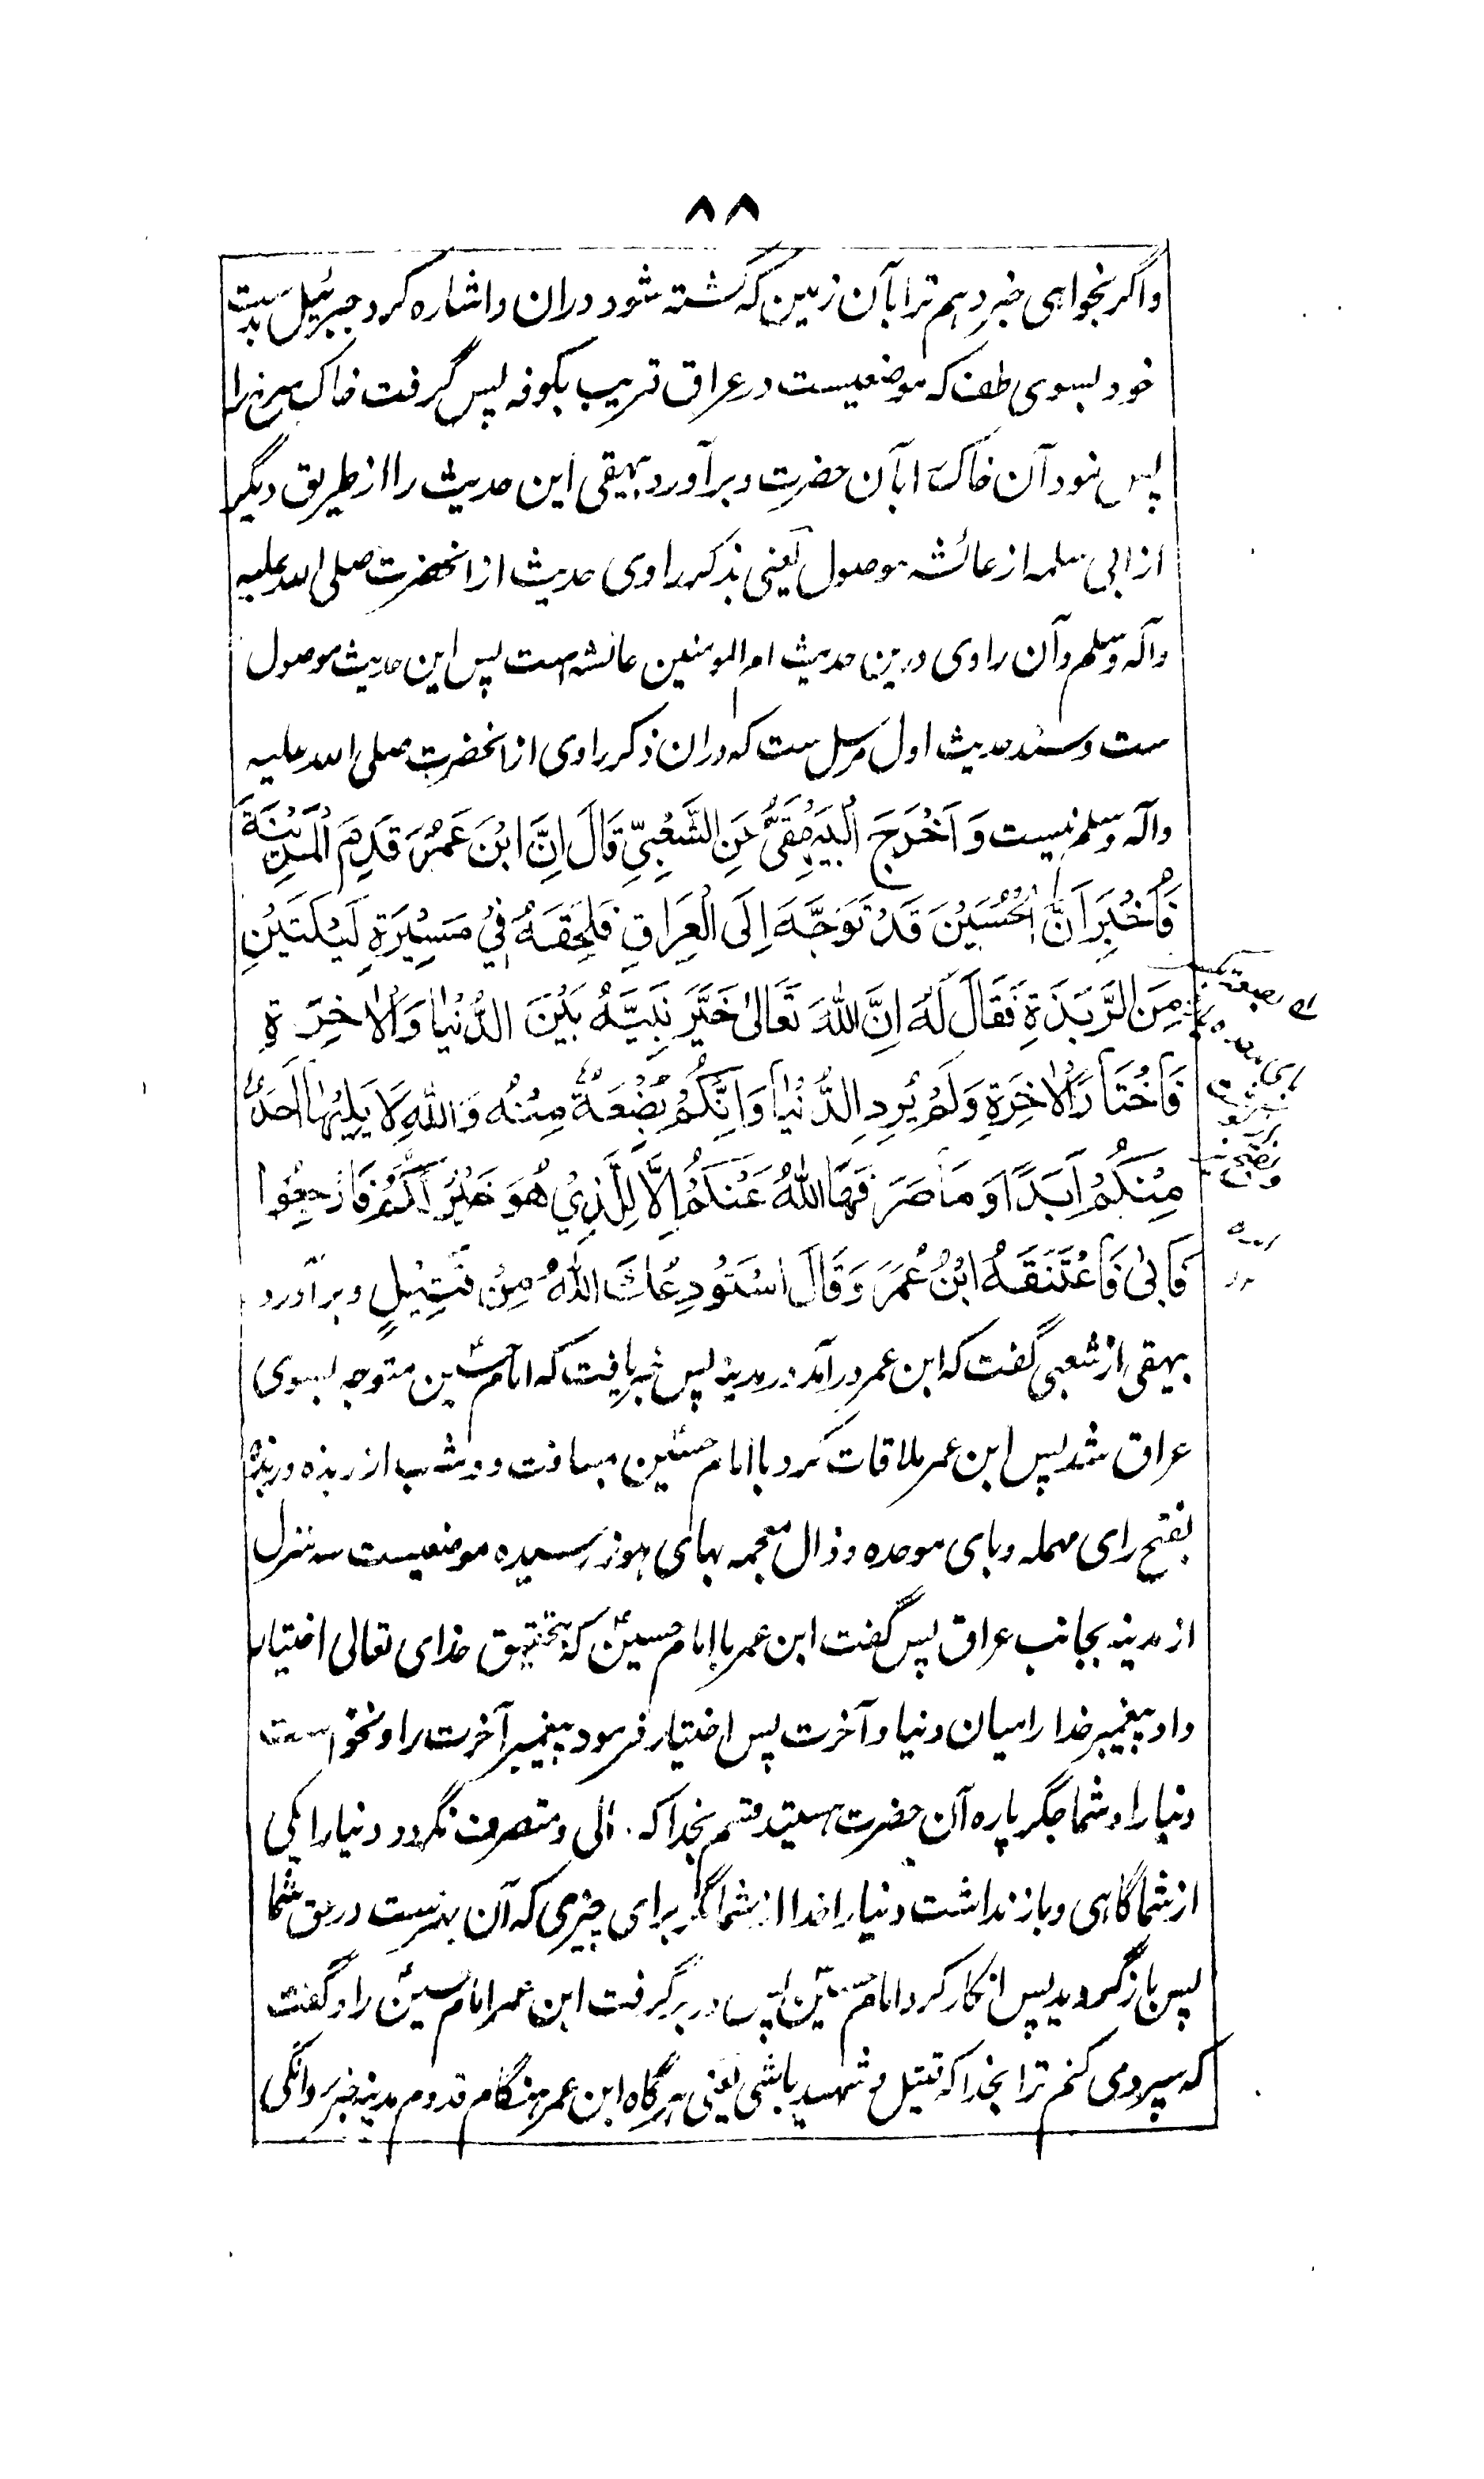 ۸۸
واگر بخواهی خبر دهم ترا بآن زمین که کشته شود دران واشاره کرد جبرئیل بدست
خود بسوی طف که موضعیست در عراق قریب بکوفه پس گرفت خاک سرخ را
پس نمود آن خاک را بآن حضرت وبرآورد بیهقی این حدیث را از طریق دیگر
از ابی سلمه از عائشه موصول یعنی بذکر راوی حدیث از آنحضرت صلی الله علیه
وآله وسلم وآن راوی درین حدیث ام المومنین عائشه است پس این حدیث موصول
ست وسند حدیث اول مرسل ست که دران ذکر راوی از آنحضرت صلی الله علیه
وآله وسلم نیست وَاَخْرَجَ الْبَیْهَقِیُّ عَنِ الشَّعْبِیِّ قَالَ اِنَّ ابْنَ عُمَرَ قَدِمَ الْمَدِیْنَةَ
فَاُخْبِرَ اَنَّ الْحُسَیْنَ قَدْ تَوَجَّهَ اِلَی الْعِرَاقِ فَلَحِقَهُ فِیْ مَسِیْرَةِ لَیْلَتَیْنِ
مِنَ الرَّبَذَةِ فَقَالَ لَهُ اِنَّ اللهَ تَعَالیٰ خَیَّرَ نَبِیَّهُ بَیْنَ الدُّنْیَا وَالْاٰخِرَةِ
فَاخْتَارَ الْاٰخِرَةَ وَلَمْ یُرِدِ الدُّنْیَا وَاِنَّکُمْ بَضْعَةٌ مِنْهُ وَاللهِ لَا یَلِیْهَا اَحَدٌ
مِنْکُمْ اَبَدًا وَمَا صَرَفَهَا اللهُ عَنْکُمْ اِلَّا لِلَّذِیْ هُوَ خَیْرٌ لَکُمْ فَارْجِعُوا
فَاَبیٰ فَاعْتَنَقَهُ ابْنُ عُمَرَ وَقَالَ اَسْتَوْدِعُكَ اللهَ مِنْ قَتِیْلٍ وبرآورد
بیهقی از شعبی گفت که ابن عمر درآمد در مدینه پس خبر یافت که امام حسین متوجه بسوی
عراق شد پس ابن عمر ملاقات کرد با امام حسین بمسافت دو شب از ربذه وربذه
بفتح رای مهمله وبای موحده وذال معجمه بهای هوز رسیده موضعیست سه منزل
از مدینه بجانب عراق پس گفت ابن عمر با امام حسینؑ که بتحقیق خدای تعالی اختیار
داد پیغمبر خدا را میان دنیا وآخرت پس اختیار فرمود پیغمبر آخرت را ونخواست
دنیا را وشما جگر پاره آن حضرت هستید قسم بخدا که والی ومتصرف نگردد دنیا را یکی
از شما گاهی وباز نداشت دنیا را خدا از شما مگر برای چیزی که آن بهترست در حق شما
پس باز گردید پس انکار کرد امام حسینؑ پس در بر گرفت ابن عمر امام حسینؑ را وگفت
که سپرد می کنم ترا بخدا که قتیل وشهید باشی یعنی هرگاه ابن عمر هنگام قدوم مدینه خبر روانگی